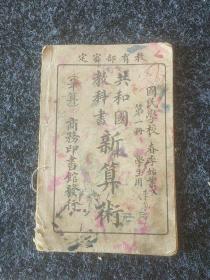 教育部審定
國民學校 春季始業
第一冊 學生用
共和國
教科書
新算術
商務印書館發行